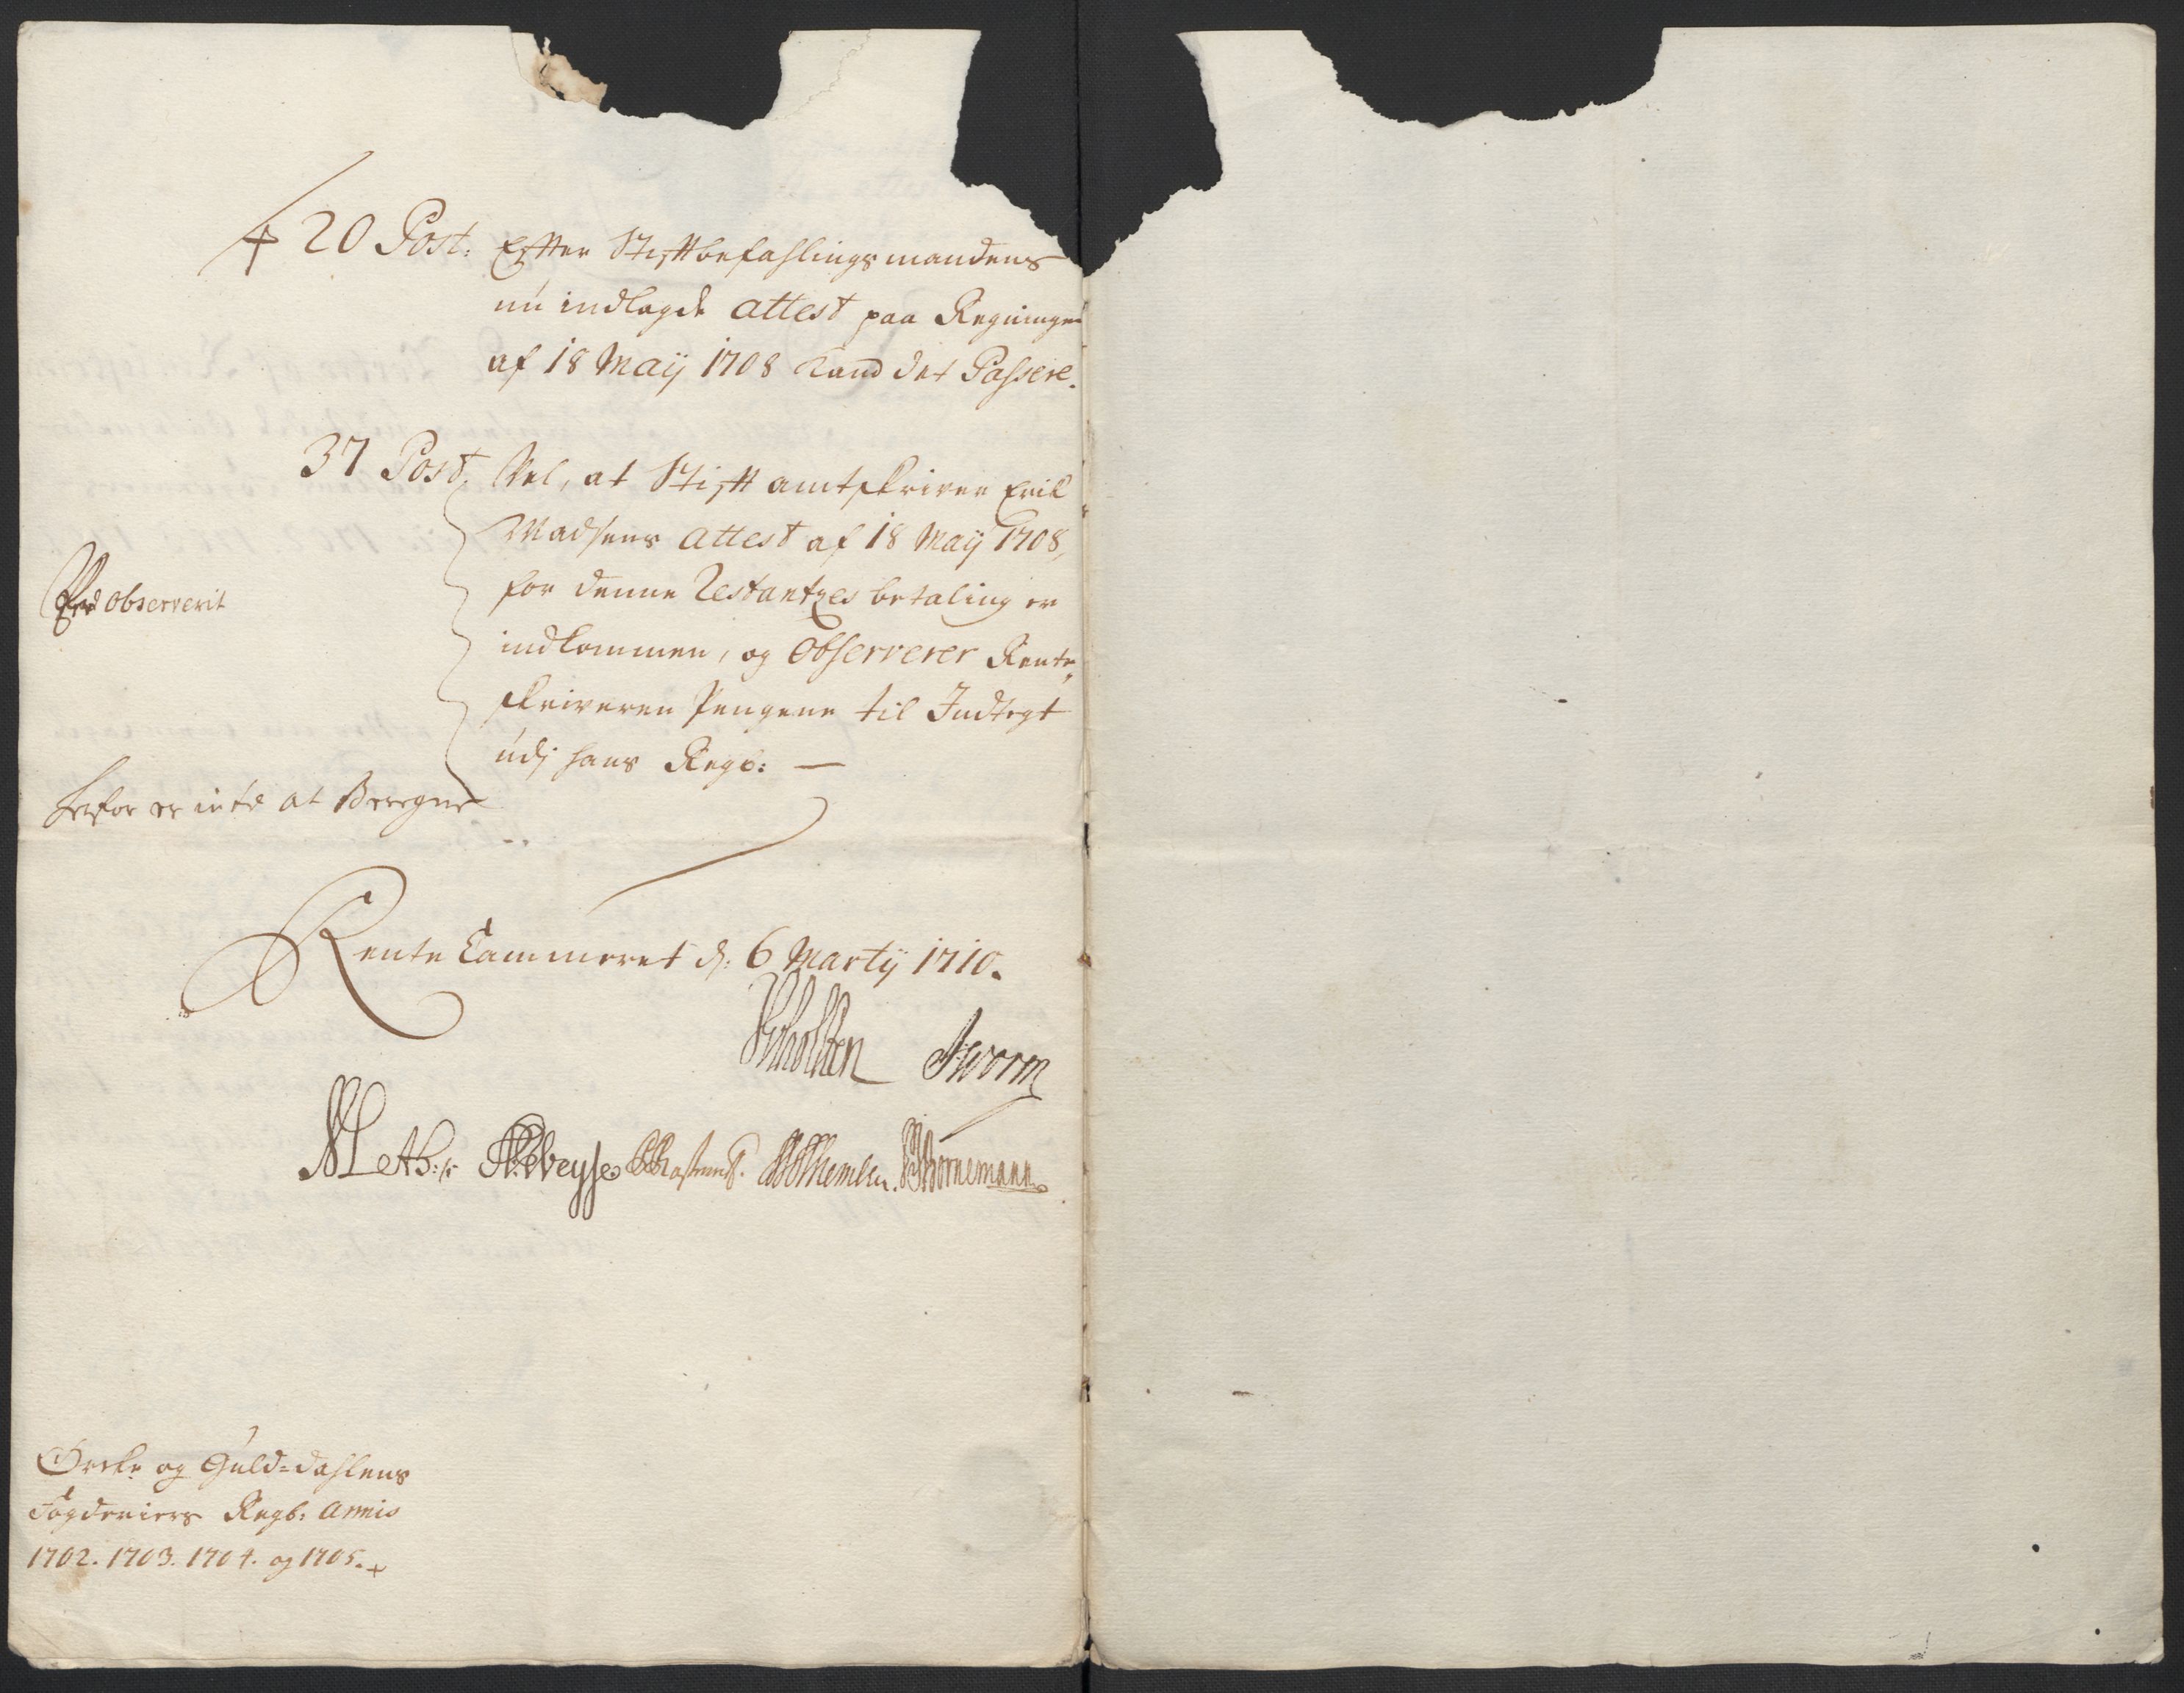 20 Post. Efter Stiftbefahlingsmandens
nu indlagde attest paa Regningen
af 18 Maij 1708 kand det Passere.
37 Post. Vel, at Stift amtskriver Erik
Madsens attest af 18 Maij 1708,
for denne Restantzes betaling er
indkommen, og Observerer Rente„
skriveren Pengene til Indtegt
udj hans Regb: —
observerit
herfor er inte at Beregne
Rente Cammeret d: 6 Martij 1710.
Worm
Meth:
Bornemann
Orcke og Guld-dahlens
Fogderiers Regb: Annis
1702. 1703. 1704. og 1705.